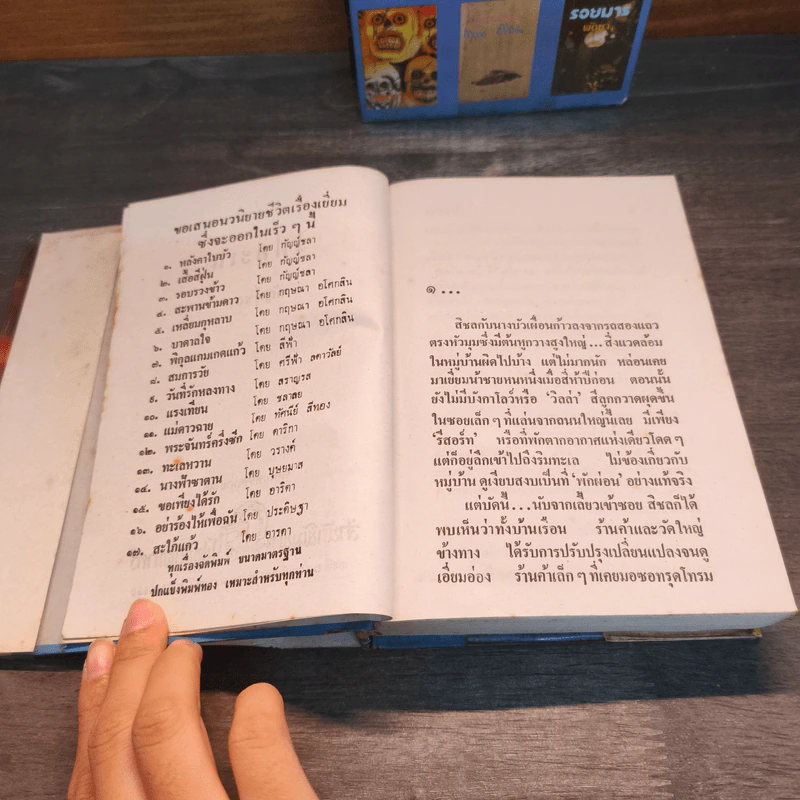 รอยมาร
ขอเสนอนวนิยายชีวิตเรื่องเยี่ยม
ซึ่งจะออกในเร็ว ๆ นี้
๑. หลังคาใบบัว โดย กัญญ์ชลา
๒. เสื้อสีฝุ่น โดย กัญญ์ชลา
๓. รอบรวงข้าว โดย กัญญ์ชลา
๔. สะพานข้ามดาว โดย กฤษณา อโศกสิน
๕. เหลี่ยมกุหลาบ โดย กฤษณา อโศกสิน
๖. บาดาลใจ โดย กฤษณา อโศกสิน
๗. พิกุลแกมเกดแก้ว โดย สีฟ้า
๘. สมการวัย โดย ศรีฟ้า ลดาวัลย์
๙. วันที่รักหลงทาง โดย สราญรส
๑๐. แรงเทียน โดย ชลาลย
๑๑. แม่ดาวฉาย โดย ทัศนีย์ สีทอง
๑๒. พระจันทร์ครึ่งซีก โดย ดาริกา
๑๓. ทะเลหวาน โดย วรางค์
๑๔. นางฟ้าซาตาน โดย บุษยมาส
๑๕. ขอเพียงได้รัก โดย อาริตา
๑๖. อย่าร้องไห้เพื่อฉัน โดย ประดิษฐา
๑๗. สะใภ้แก้ว โดย อารดา
ทุกเรื่องจัดพิมพ์ ขนาดมาตรฐาน
ปกแข็งพิมพ์ทอง เหมาะสำหรับทุกท่าน
๑ ...
สิชลกับนางบัวเผื่อนก้าวลงจากรถสองแถว
ตรงหัวมุมซึ่งมีต้นหูกวางสูงใหญ่...สิ่งแวดล้อม
ในหมู่บ้านผิดไปบ้าง แต่ไม่มากนัก หล่อนเคย
มาเยี่ยมน้าชายหนหนึ่งเมื่อสี่ห้าปีก่อน ตอนนั้น
ยังไม่มีบังกาโลว์หรือ ‘วิลล่า’ สีลูกกวาดผุดขึ้น
ในซอยเล็ก ๆ ที่แล่นจากถนนใหญ่นี้เลย มีเพียง
‘รีสอร์ท’ หรือที่พักตากอากาศแห่งเดียวโดด ๆ
แต่ก็อยู่ลึกเข้าไปถึงริมทะเล ไม่ข้องเกี่ยวกับ
หมู่บ้าน ดูเงียบสงบเป็นที่ ‘พักผ่อน’ อย่างแท้จริง
แต่บัดนี้...นับจากเลี้ยวเข้าซอย สิชลก็ได้
พบเห็นว่าทั้งบ้านเรือน ร้านค้าและวัดใหญ่
ข้างทาง ได้รับการปรับปรุงเปลี่ยนแปลงจนดู
เอี่ยมอ่อง ร้านค้าเล็ก ๆ ที่เคยมอซอทรุดโทรม